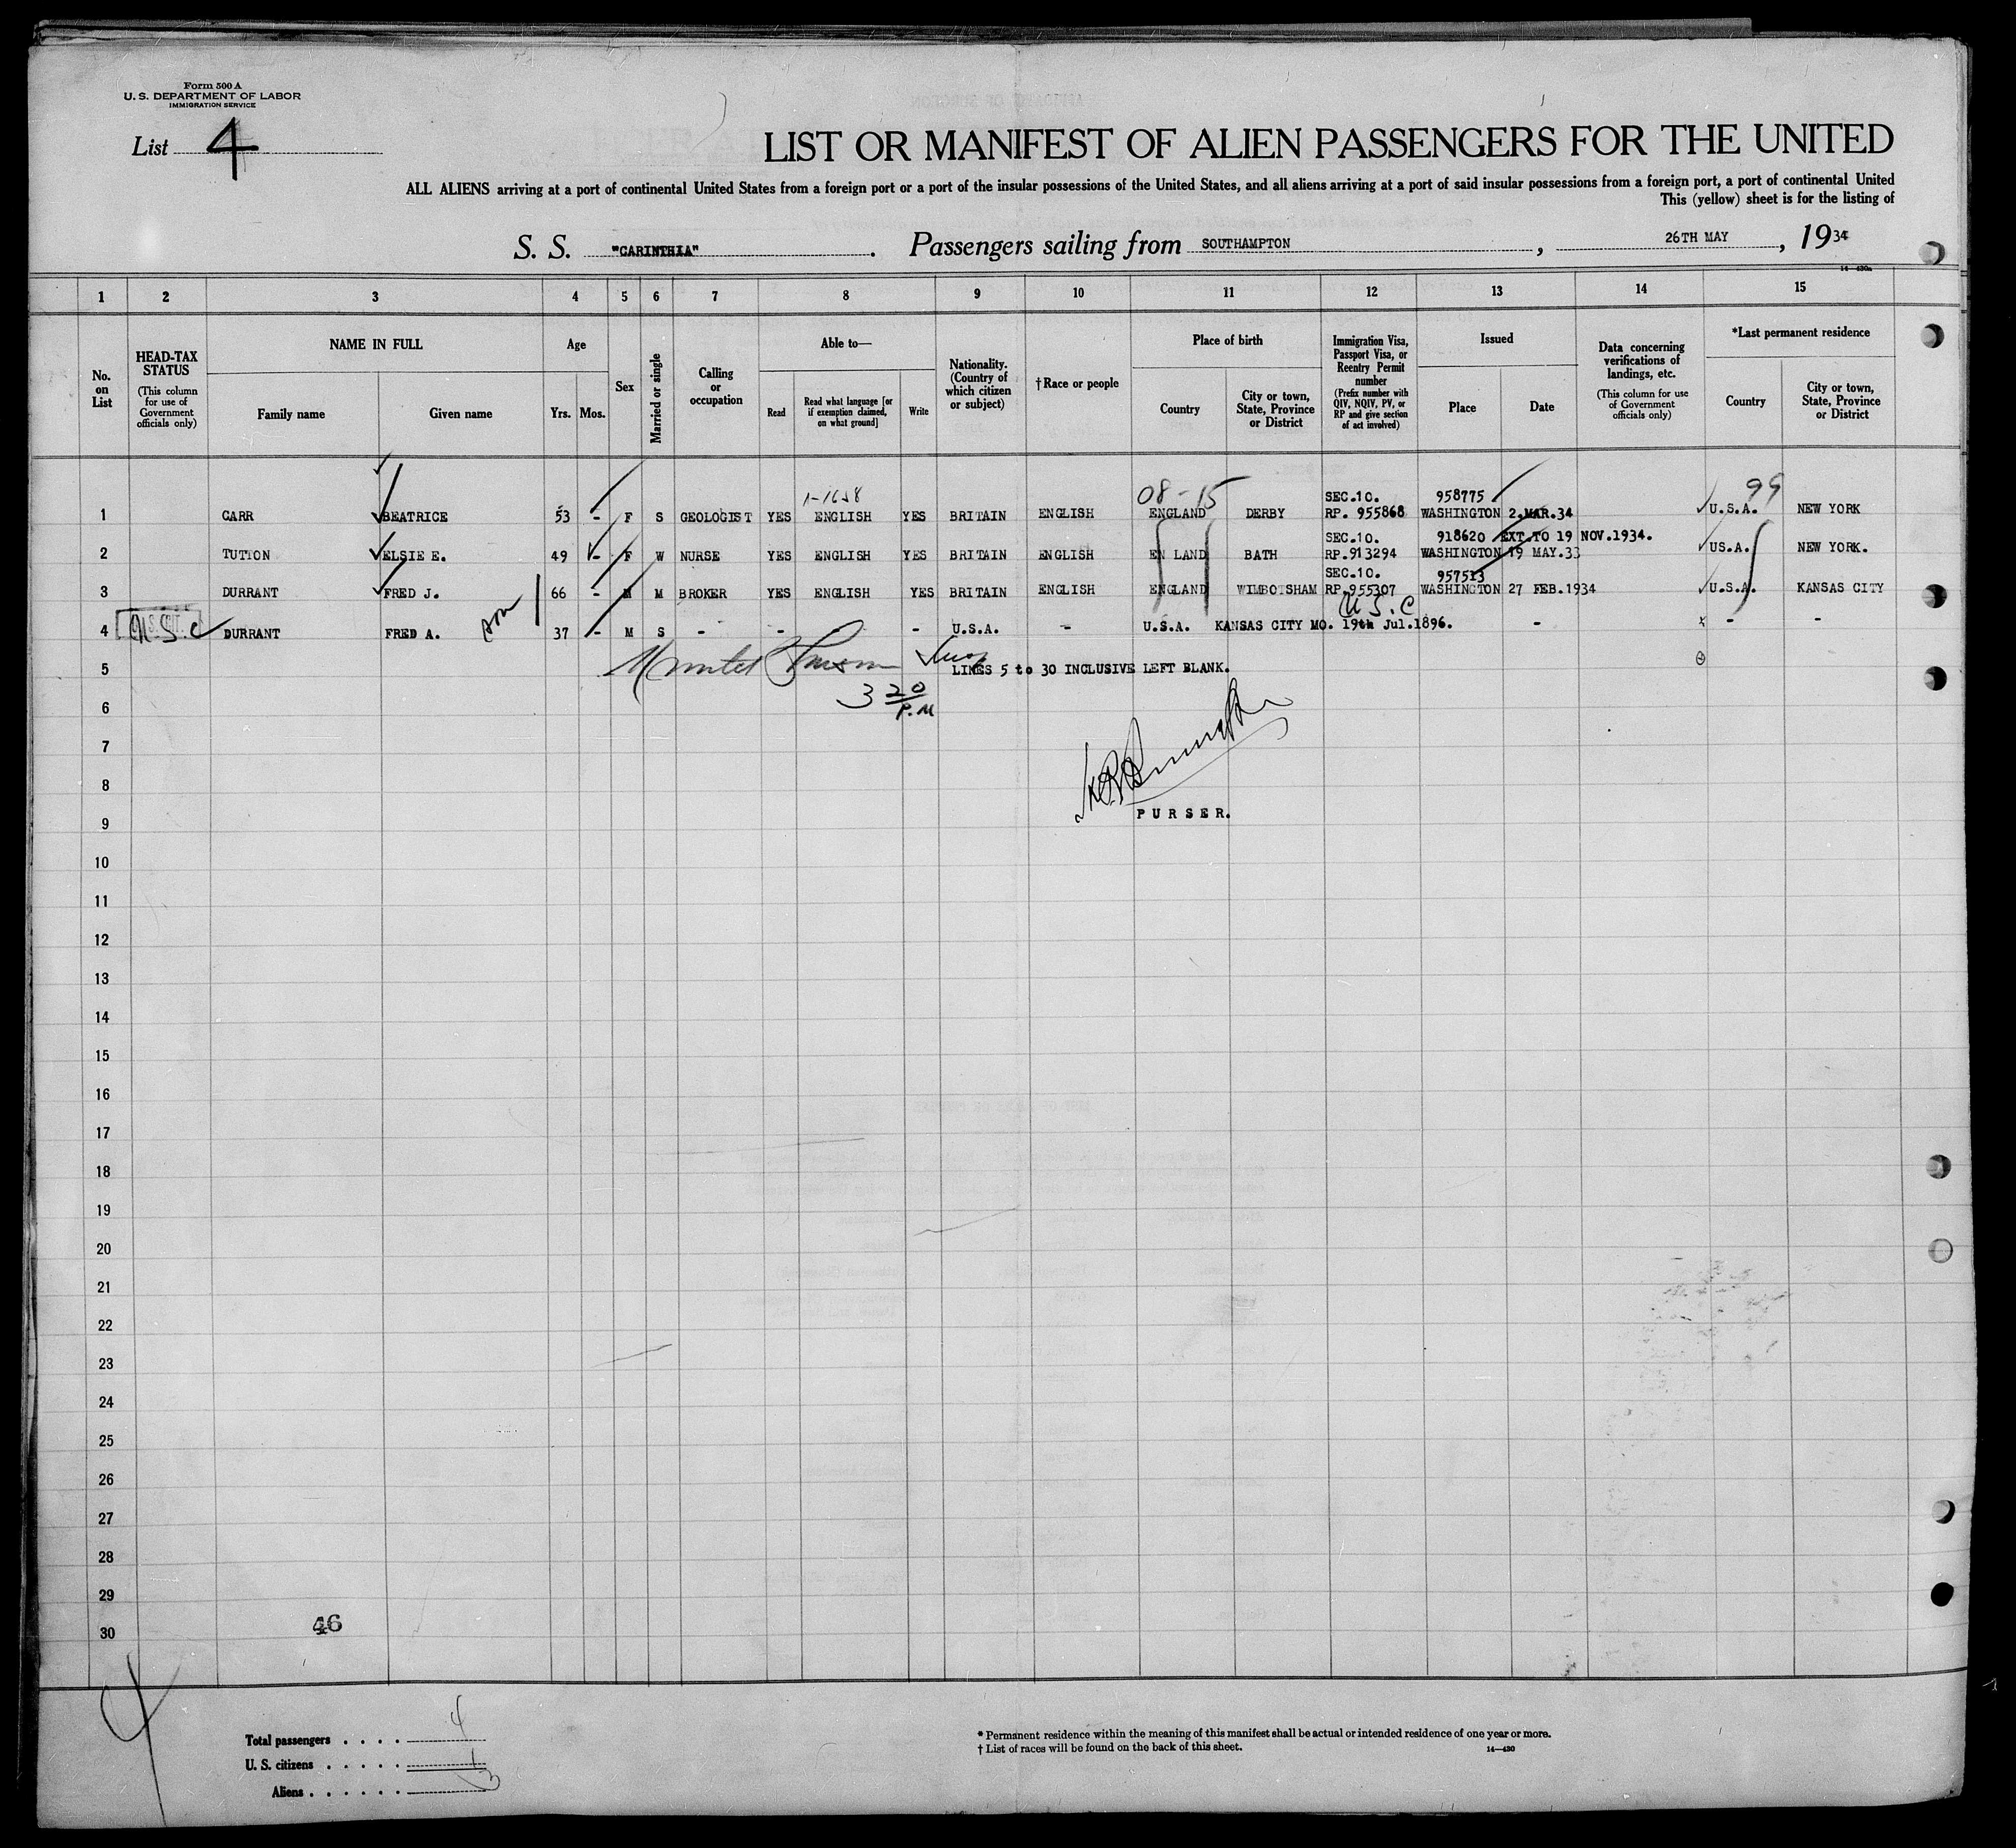 Form 500 A
U. S. DEPARTMENT OF LABOR
IMMIGRATION SERVICE
List 4
LIST OR MANIFEST OF ALIEN PASSENGERS FOR THE UNITED
ALL ALIENS arriving at a port of continental United States from a foreign port or a port of the insular possessions of the United States, and all aliens arriving at a port of said insular possessions from a foreign port, a port of continental United
This (yellow) sheet is for the listing of
S. S. "CARINTHIA". Passengers sailing from SOUTHAMPTON, 26TH MAY, 1934
14—430a
1 2 3 4 5 6 7 8 9 10 11 12 13 14 15
No. on List
HEAD-TAX STATUS (This column for use of Government officials only)
NAME IN FULL
Family name
Given name
Age
Yrs. Mos.
Sex
Married or single
Calling or occupation
Able to—
Read
Read what language [or if exemption claimed, on what ground]
Write
Nationality. (Country of which citizen or subject)
† Race or people
Place of birth
Country
City or town, State, Province or District
Immigration Visa, Passport Visa, or Reentry Permit number (Prefix number with QIV, NQIV, PV, or RP and give section of act involved)
Issued
Place
Date
Data concerning verifications of landings, etc. (This column for use of Government officials only)
*Last permanent residence
Country
City or town, State, Province or District
1-1658 08-15 SEC.10. 958775 99
1 CARR BEATRICE 53 - F S GEOLOGIST YES ENGLISH YES BRITAIN ENGLISH ENGLAND DERBY RP. 955868 WASHINGTON 2.MAR.34 U.S.A. NEW YORK
SEC.10. 918620 EXT.TO 19 NOV.1934.
2 TUTTON ELSIE E. 49 - F W NURSE YES ENGLISH YES BRITAIN ENGLISH EN LAND BATH RP.913294 WASHINGTON 19 MAY.33 US.A. NEW YORK.
SEC.10. 957513
3 DURRANT FRED J. 66 - M M BROKER YES ENGLISH YES BRITAIN ENGLISH ENGLAND WIMBOTSHAM RP.955307 WASHINGTON 27 FEB.1934 U.S.A. KANSAS CITY
U.S.C
4 U.S.C DURRANT FRED A. son 37 - M S - - - U.S.A. - U.S.A. KANSAS CITY MO. 19th Jul.1896. - x - -
5 LINES 5 to 30 INCLUSIVE LEFT BLANK.
6 3 20 P.M
7
8
9 PURSER.
10
11
12
13
14
15
16
17
18
19
20
21
22
23
24
25
26
27
28
29
30
46
4
Total passengers . . . . 4
U. S. citizens . . . . . 1
Aliens . . . . . . 3
* Permanent residence within the meaning of this manifest shall be actual or intended residence of one year or more.
† List of races will be found on the back of this sheet.
14—430